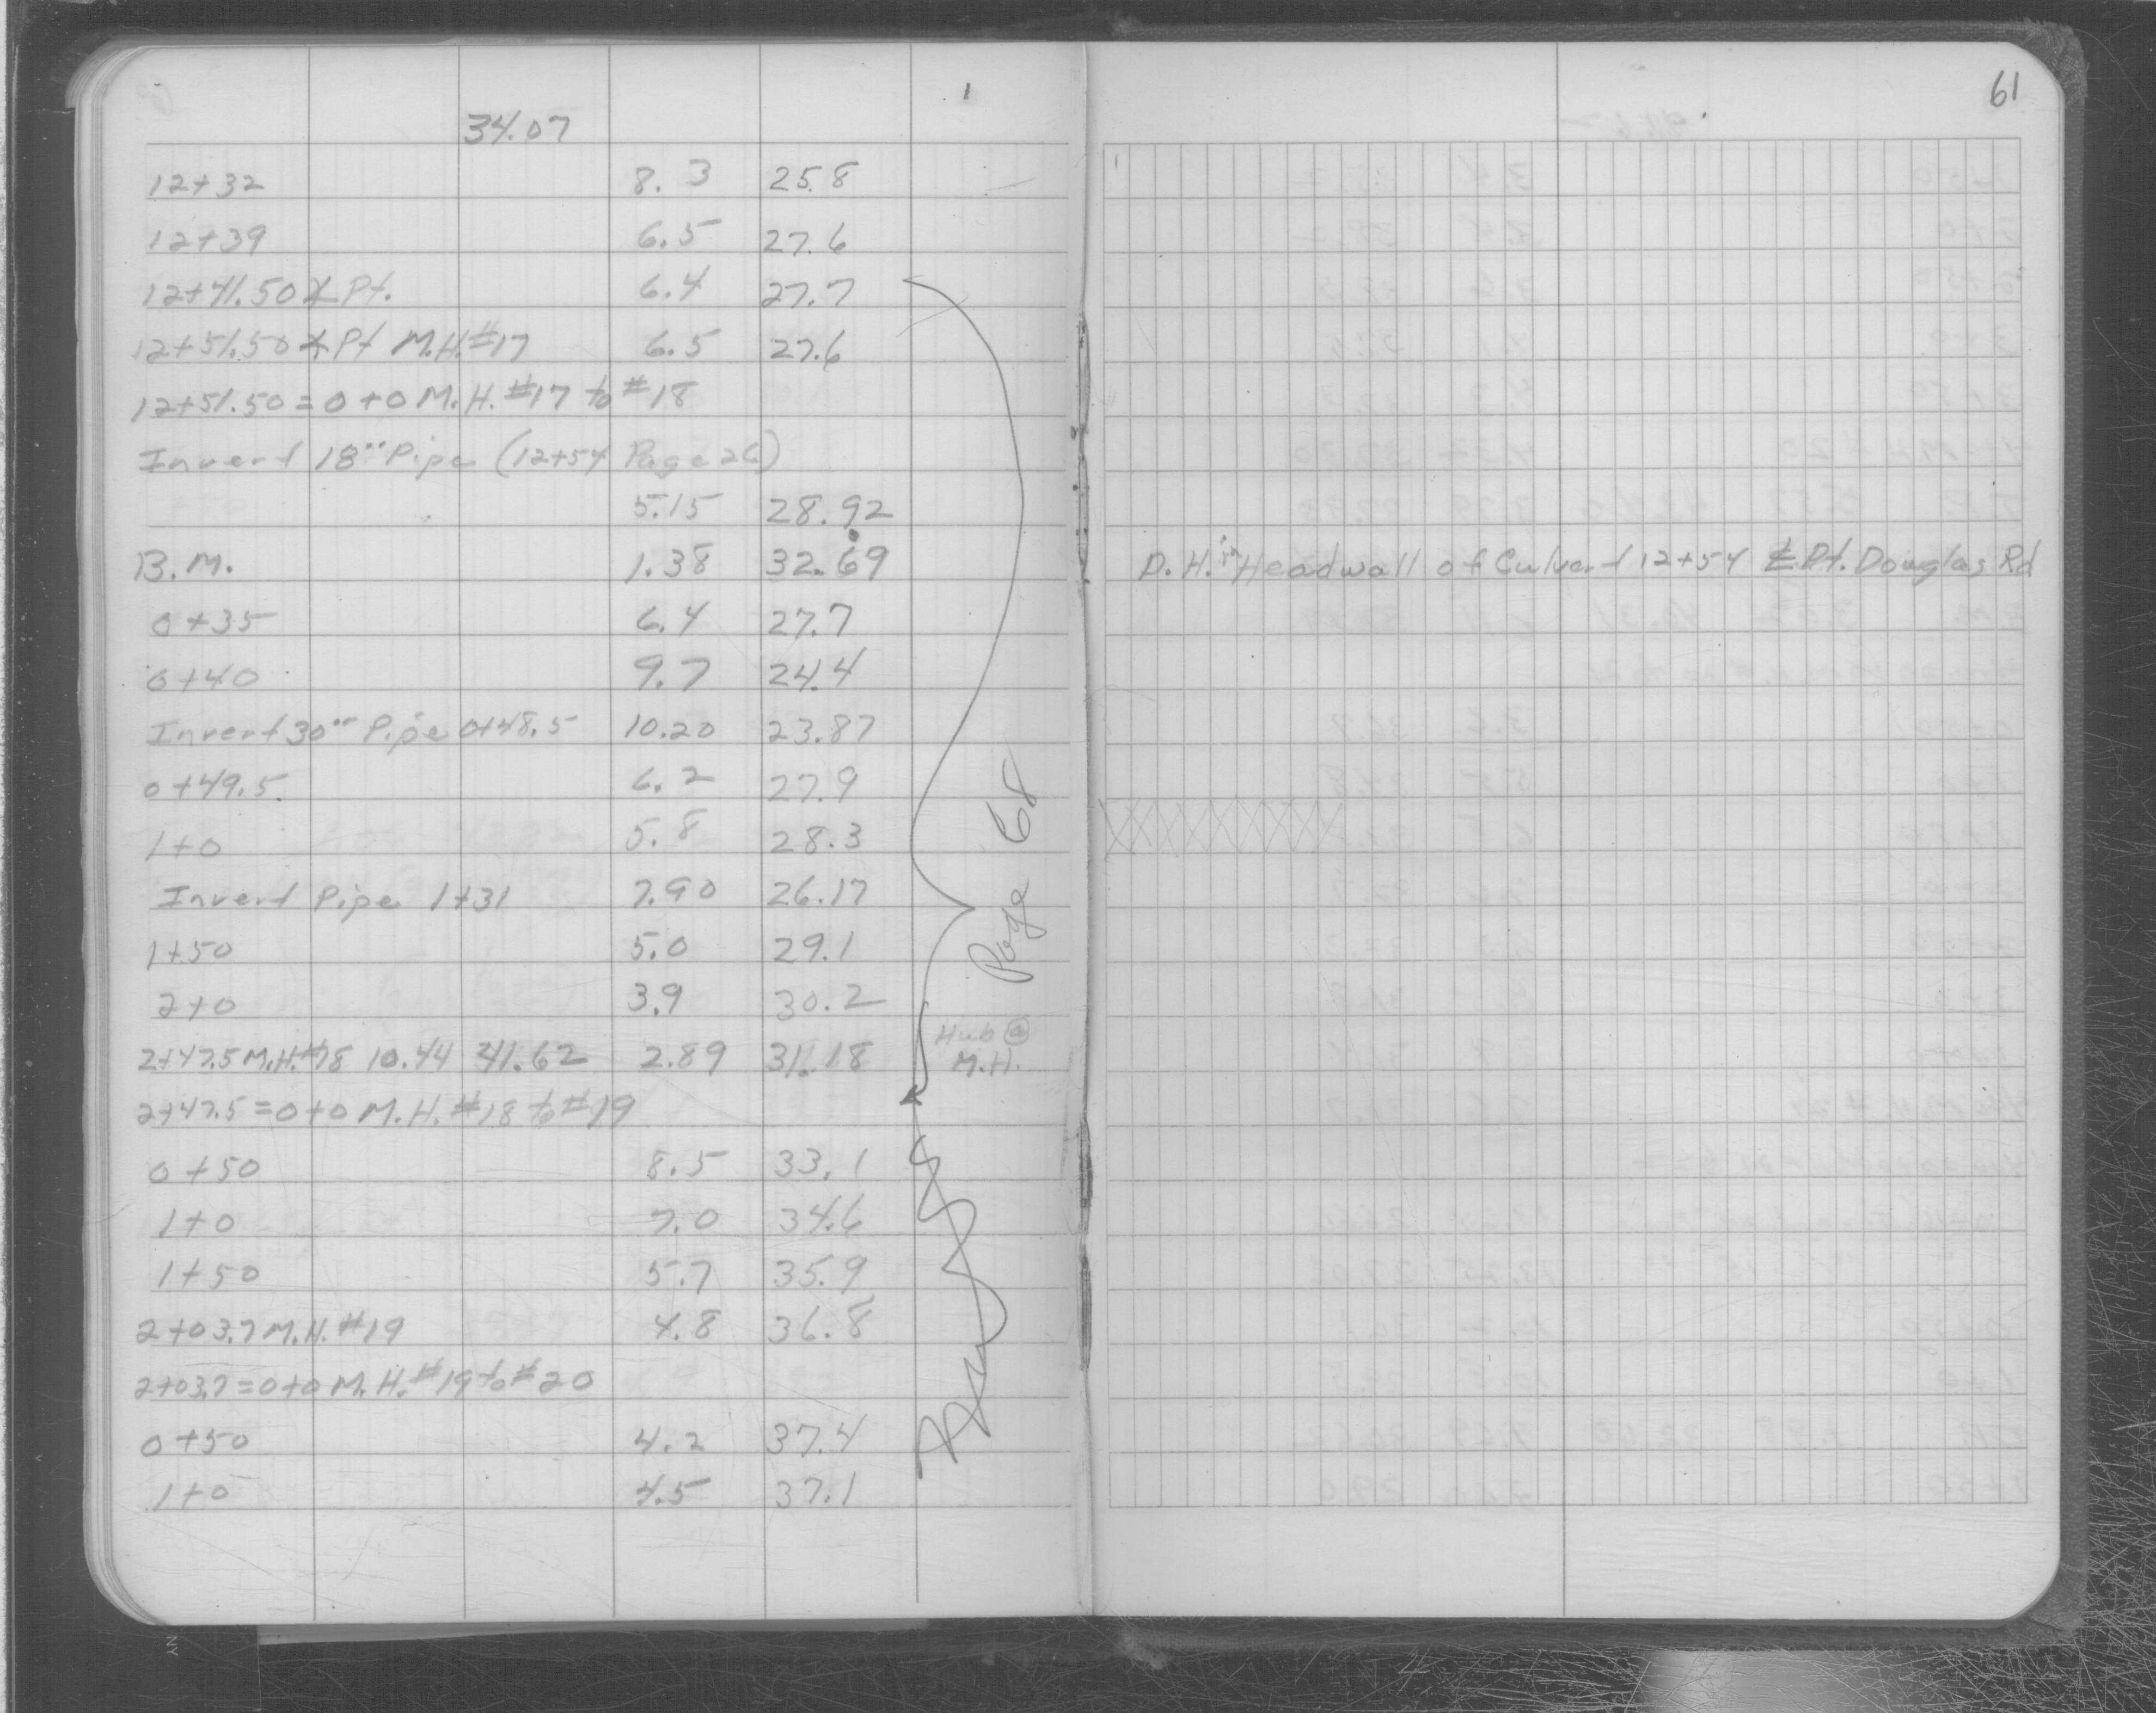 34.07
12+32 8.3 25.8
12+39 6.5 27.6
12+41.50 ∠Pt. 6.4 27.7
12+51.50 ∠Pt M.H.#17 6.5 27.6
12+51.50 = 0+0 M.H. #17 to #18
Invert 18"" Pipe (12+54 Page 26)
5.15 28.92
B.M. 1.38 32.69
0+35 6.4 27.7
0+40 9.7 24.4
Invert 30"" Pipe 0+48.5 10.20 23.87
0+49.5 6.2 27.9
1+0 5.8 28.3
Invert Pipe 1+31 7.90 26.17
1+50 5.0 29.1
2+0 3.9 30.2
2+47.5 M.H.#18 10.44 41.62 2.89 31.18 Hub @ M.H.
2+47.5 = 0+0 M.H. #18 to #19
0+50 8.5 33.1
1+0 7.0 34.6
1+50 5.7 35.9
2+03.7 M.H. #19 4.8 36.8
2+03.7 = 0+0 M.H. #19 to #20
0+50 4.2 37.4
1+0 4.5 37.1
Page 68
61
D.H. in Headwall of Culvert 12+54 ℄ Pt. Douglas Rd